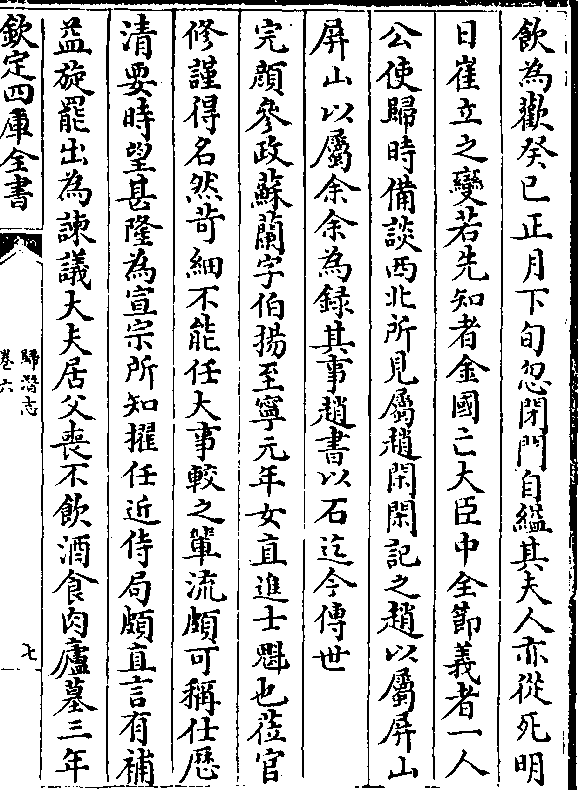 飲為歡癸巳正月下旬忽閉門自縊其夫人亦從死明
日崔立之變若先知者金國亡大臣中全節義者一人
公使歸時備談西北所見屬趙閑閑記之趙以屬屏山
屏山以屬余余為録其事趙書以石迄今傳世
完顔參政蘇蘭字伯揚至寧元年女直進士魁也蒞官
修謹得名然苛細不能任大事較之軰流頗可稱仕歴
清要時望甚隆為宣宗所知擢任近侍局頗直言有補
益旋罷出為諫議大夫居父喪不飲酒食肉廬墓三年
欽定四庫全書
歸潛志
卷六
七